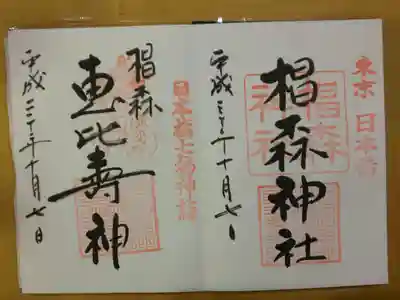 東京 日本橋
椙森神社
椙森神社
平成二十年十月七日
日本橋七福神詣
椙森
恵比寿神
平成二十年十月七日